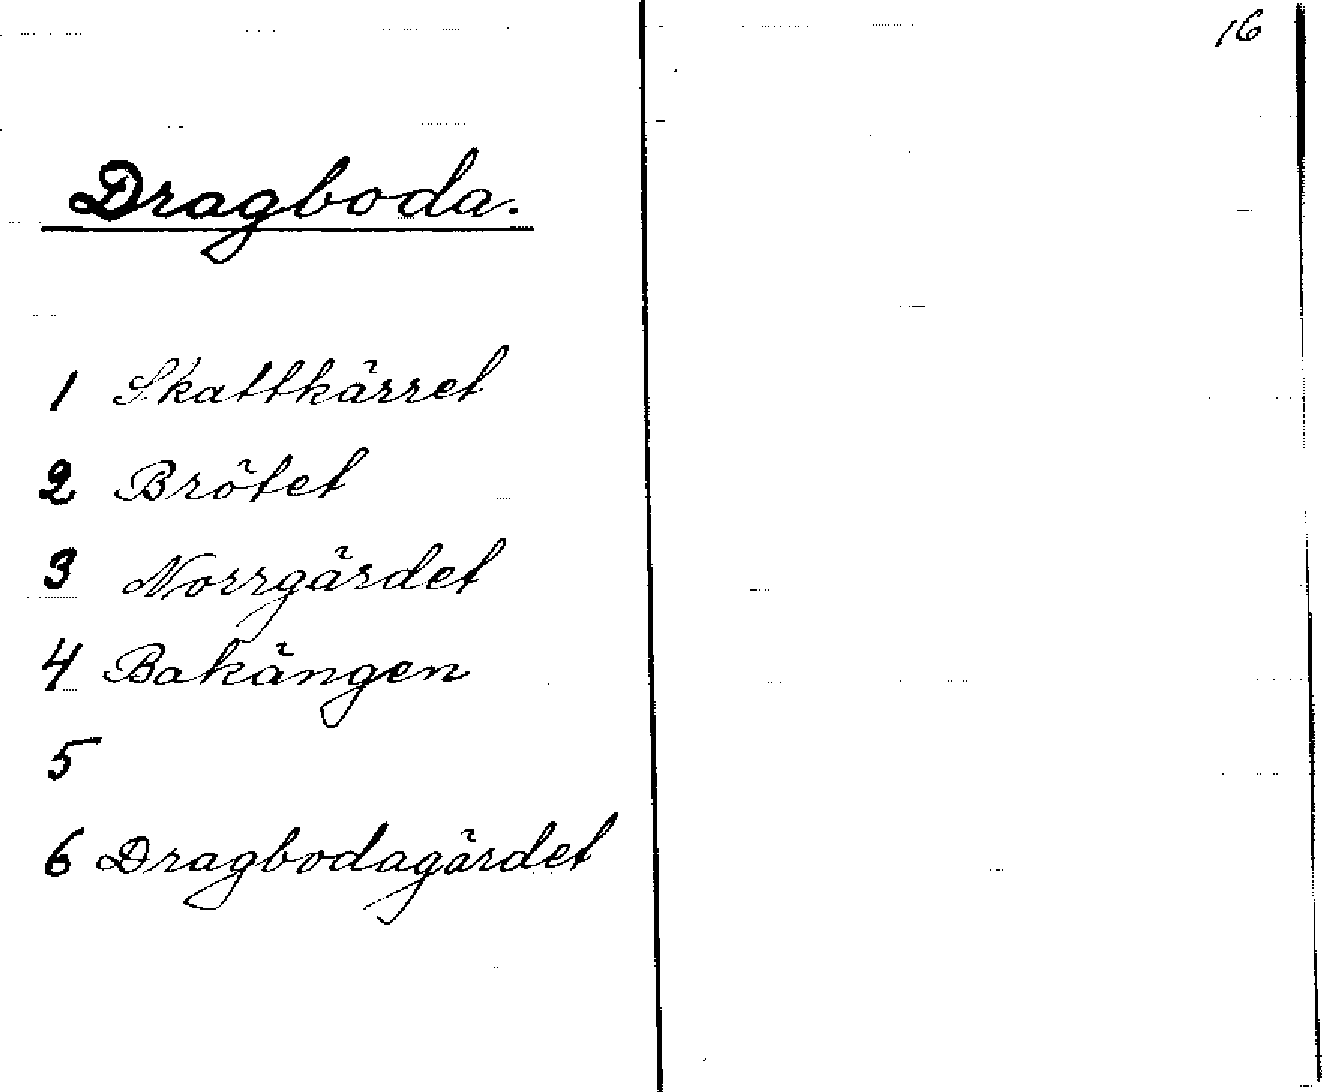 Dragboda.
1 Skattkärret
2 Brötet
3 Norrgärdet
4 Bakängen
5
6 Dragbodagärdet
16